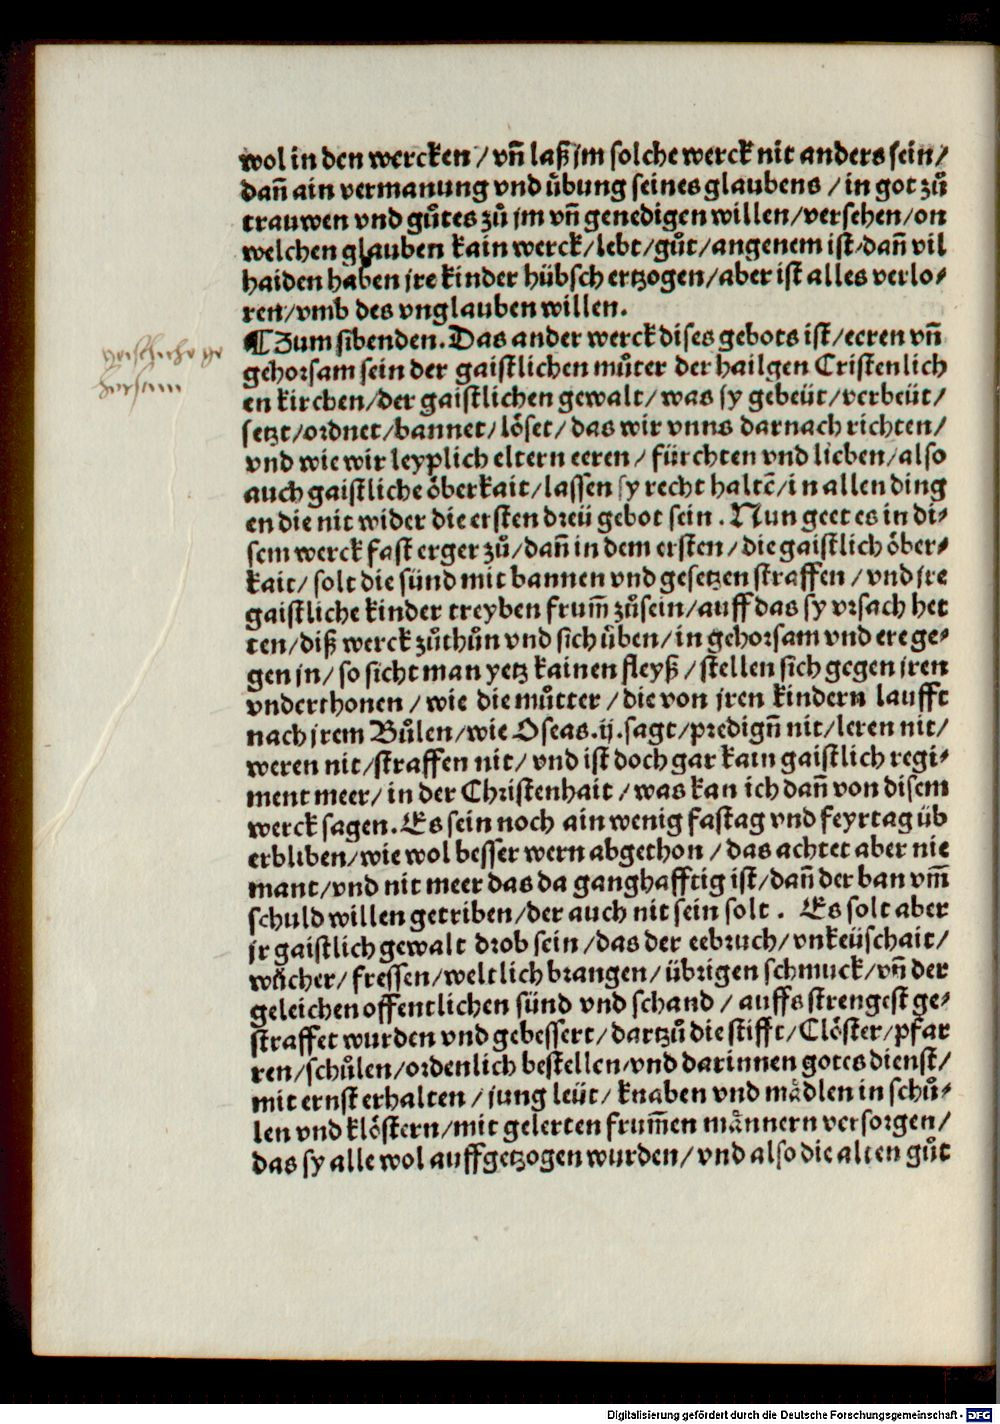 wol in den wercken / vñ laß jm solche werck nit anders sein /
dañ ain vermanung vnd übung seines glaubens / in got zů
trauwen vnd gůtes zů jm vñ genedigen willen / versehen / on
welchen glauben kain werck / lebt / gůt / angenem ist / dañ vil
haiden haben jre kinder hübsch ertzogen / aber ist alles verlo⸗
ren / vmb des vnglauben willen.
¶ Zum sibenden. Das ander werck dises gebots ist / eeren vñ
gehorsam sein der gaistlichen můter der hailgen Cristenlich
en kirchen / der gaistlichen gewalt / was sy gebeüt / verbeüt /
setzt / ordnet / bannet / löset / das wir vnns darnach richten /
vnd wie wir leyplich eltern eeren / fürchten vnd lieben / also
auch gaistliche öberkait / lassen sy recht haltē / in allen ding
en die nit wider die ersten dreü gebot sein. Nun geet es in di⸗
sem werck fast erger zů / dañ in dem ersten / die gaistlich öber⸗
kait / solt die sünd mit bannen vnd gesetzen straffen / vnd jre
gaistliche kinder treyben frum̃ zůsein / auff das sy vrsach het
ten / diß werck zůthůn vnd sich üben / in gehorsam vnd ere ge⸗
gen jn / so sicht man yetz kainen fleyß / stellen sich gegen jren
vnderthonen / wie die můtter / die von jren kindern laufft
nach jrem Bůlen / wie Oseas. ij. sagt / predigñ nit / leren nit /
weren nit / straffen nit / vnd ist doch gar kain gaistlich regi⸗
ment meer / in der Christenhait / was kan ich dañ von disem
werck sagen. Es sein noch ain wenig fastag vnd feyrtag üb
erbliben / wie wol besser wern abgethon / das achtet aber nie
mant / vnd nit meer das da ganghafftig ist / dañ der ban vm̃
schuld willen getriben / der auch nit sein solt. Es solt aber
jr gaistlich gewalt drob sein / das der eebruch / vnkeüschait /
wůcher / fressen / weltlich brangen / übrigen schmuck / vñ der
geleichen offentlichen sünd vnd schand / auffs strengest ge⸗
straffet wurden vnd gebessert / dartzů die stifft / Clöster / pfar
ren / schůlen / ordenlich bestellen / vnd darinnen gotes dienst /
mit ernst erhalten / jung leüt / knaben vnd mädlen in schů⸗
len vnd klöstern / mit gelerten frum̃en männern versorgen /
das sy alle wol auffgetzogen wurden / vnd also die alten gůt
geistliche ge
horsam
Digitalisierung gefördert durch die Deutsche Forschungsgemeinschaft - DFG